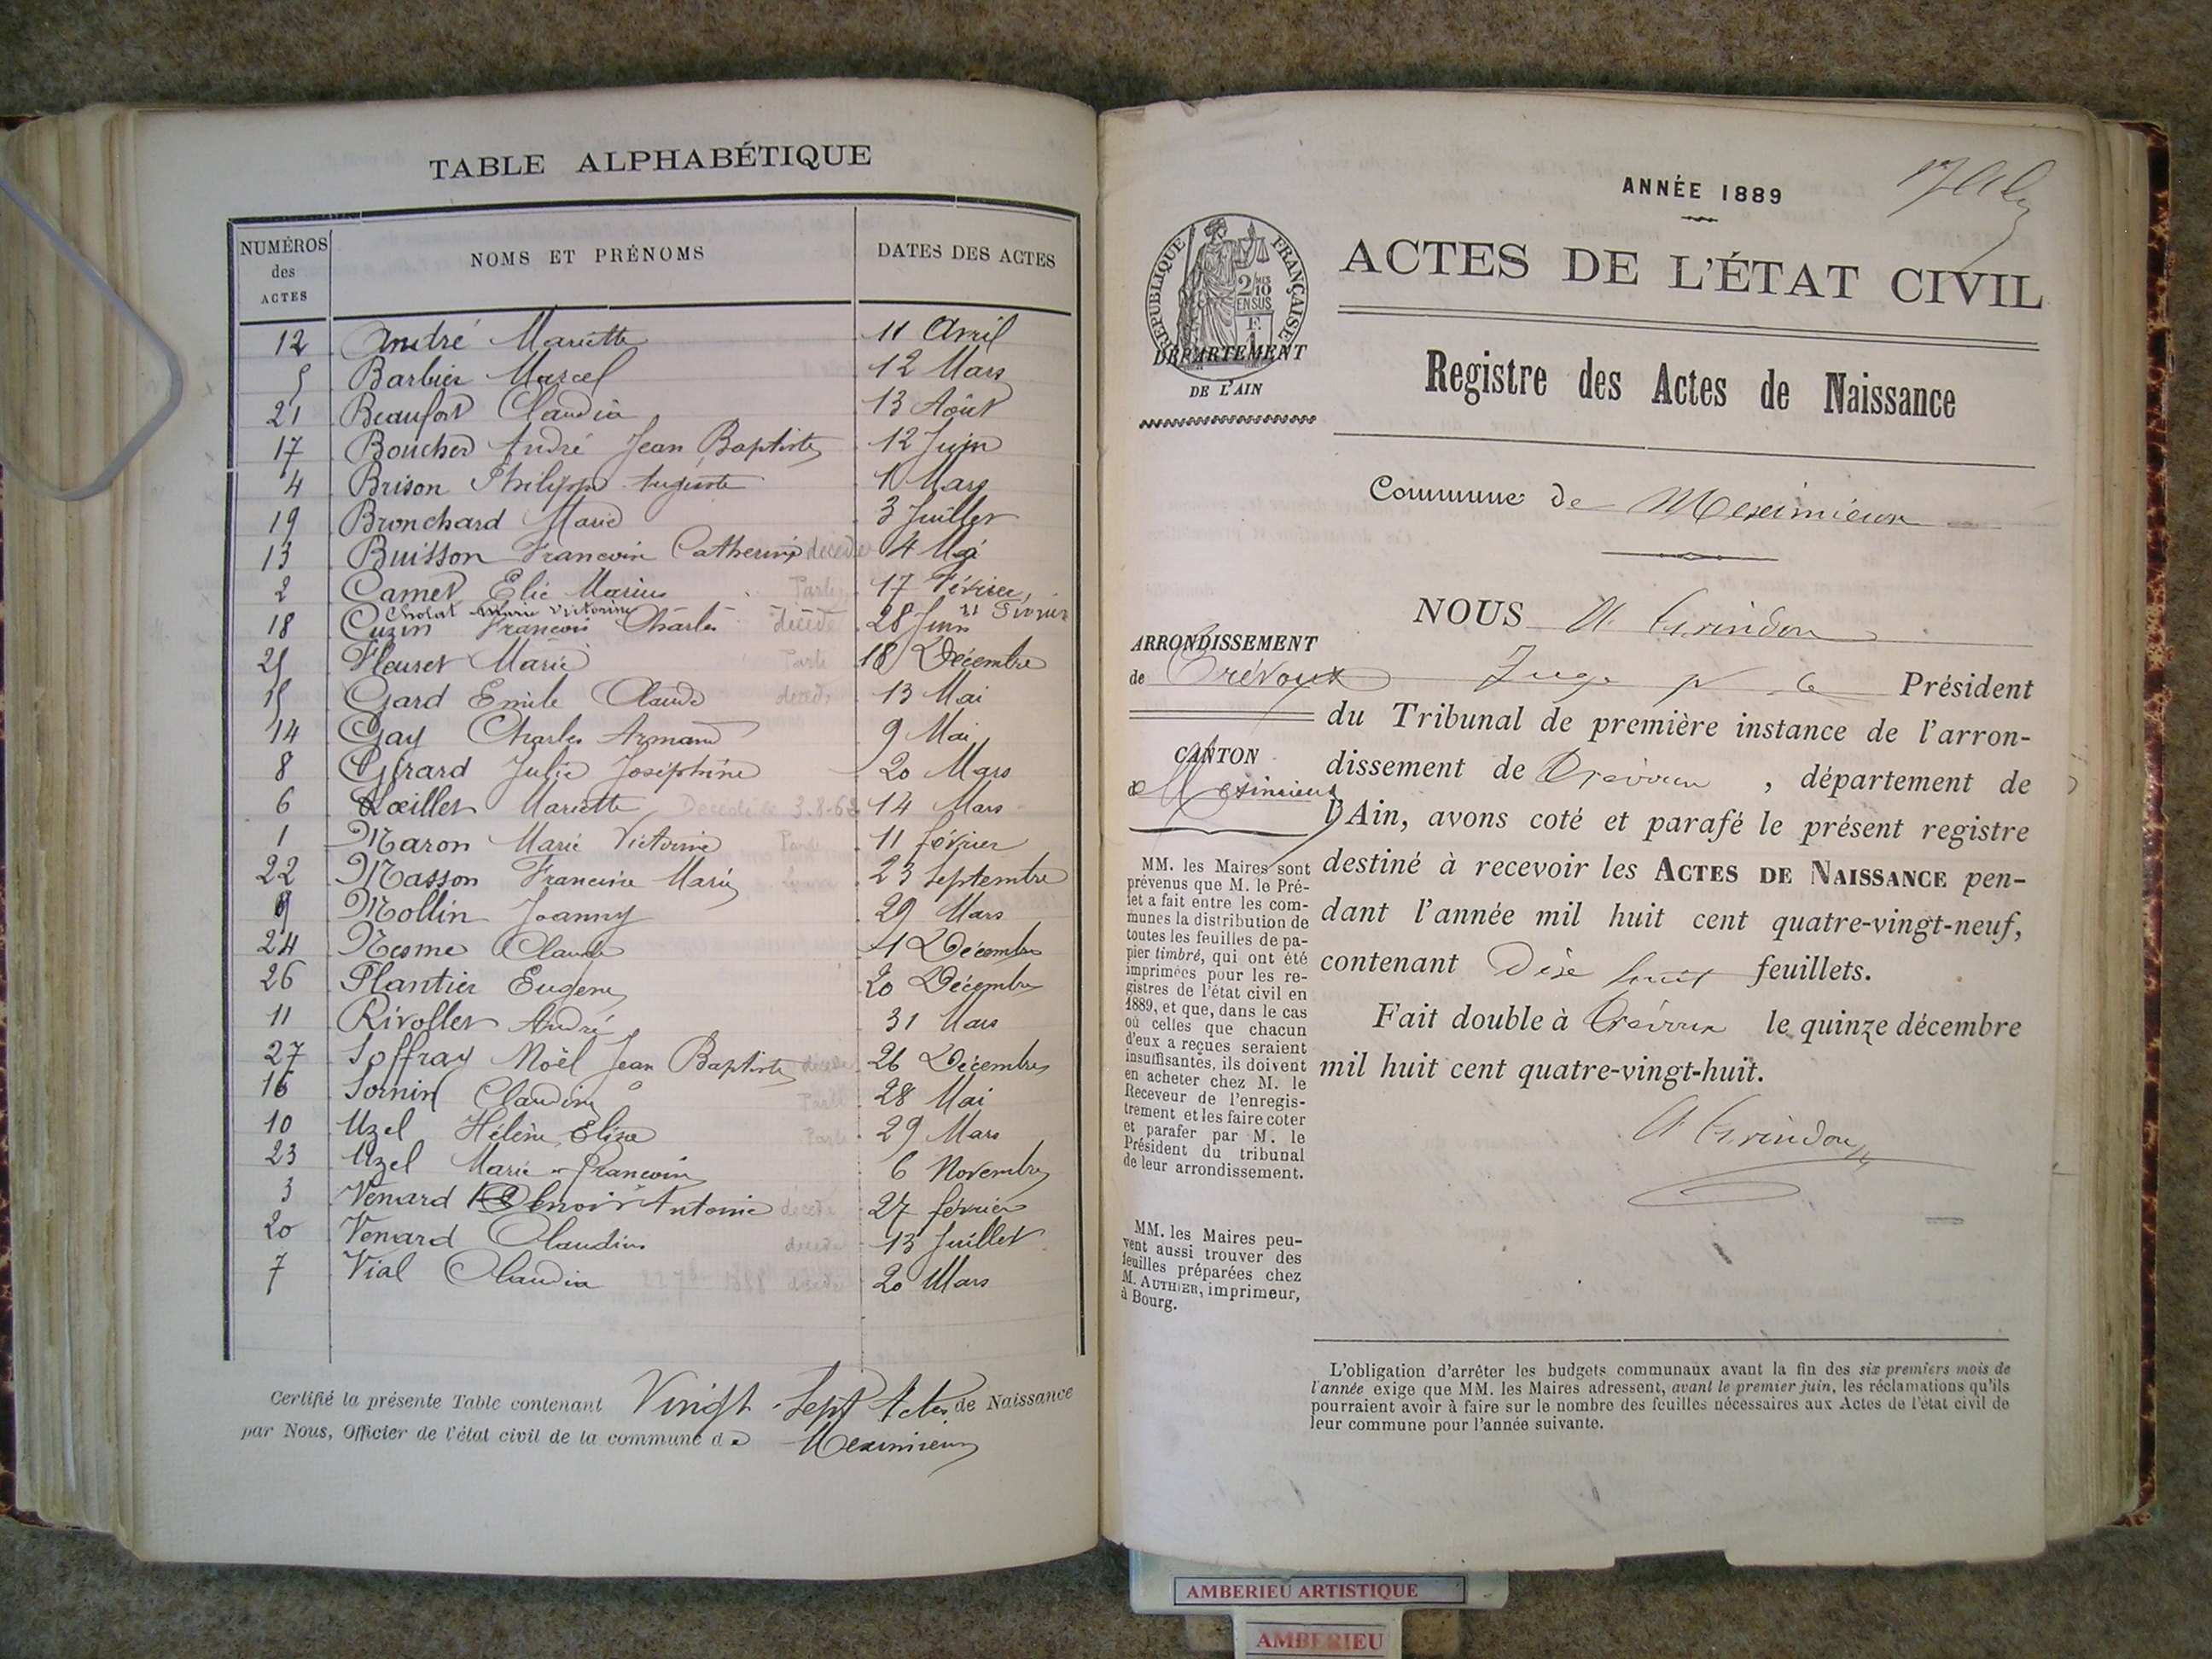 TABLE ALPHABÉTIQUE
NUMÉROS des ACTES NOMS ET PRÉNOMS DATES DES ACTES
12 André Mariette 11 Avril
5 Barbier Marcel 12 Mars
21 Beaufort Claudia 13 Août
17 Boucher André Jean Baptiste 12 Juin
4 Brison Philippe Auguste 1 Mars
19 Bronchard Marie 3 Juillet
13 Buisson Francoise Catherine decedee 4 Mai
2 Camet Elie Marius Parti 17 Février
Cholat Marie Victorine 11 Février
18 Cuzin François Charles décédé 28 Juin
25 Fleuret Marie Parti 18 Décembre
15 Gard Emile Claude décédé 13 Mai
14 Gay Charles Armand 9 Mai
8 Girard Julie Joséphine 20 Mars
6 Lœillet Mariette Décédée le 3.8.62 14 Mars
1 Maron Marie Victorine Partie 11 février
22 Masson Francine Marie 23 Septembre
9 Mollin Joanny 29 Mars
24 Nesme Claude 1 Décembre
26 Plantier Eugene 20 Décembre
11 Rivollet André 31 Mars
27 Soffray Noël Jean Baptiste décédé 26 Décembre
16 Sornin Claudine Parti 28 Mai
10 Uzel Hélène Elisa Partie 29 Mars
23 Uzel Marie Francoise 6 Novembre
3 Venard Benoit Antoine décédé 27 février
20 Venard Claudius décédé 13 Juillet
7 Vial Claudia 1888 décédé 20 Mars
Certifié la présente Table contenant Vingt-Sept Actes de Naissance
par Nous, Officier de l'état civil de la commune de Meximieux
ANNÉE 1889
ACTES DE L'ÉTAT CIVIL
RÉPUBLIQUE FRANÇAISE
2/10 EN SUS
DÉPARTEMENT
DE L'AIN
Registre des Actes de Naissance
Commune de Meximieux
NOUS A Grindon
ARRONDISSEMENT
de Trévoux
Juge pr le Président
du Tribunal de première instance de l'arron-
CANTON
de Meximieux
dissement de Trévoux, département de
l'Ain, avons coté et parafé le présent registre
destiné à recevoir les ACTES DE NAISSANCE pen-
dant l'année mil huit cent quatre-vingt-neuf,
contenant Dix huit feuillets.
Fait double à Trévoux le quinze décembre
mil huit cent quatre-vingt-huit.
A Grindon
MM. les Maires sont
prévenus que M. le Pré-
fet a fait entre les com-
munes la distribution de
toutes les feuilles de pa-
pier timbré, qui ont été
imprimées pour les re-
gistres de l'état civil en
1889, et que, dans le cas
où celles que chacun
d'eux a reçues seraient
insuffisantes, ils doivent
en acheter chez M. le
Receveur de l'enregis-
trement et les faire coter
et parafer par M. le
Président du tribunal
de leur arrondissement.
MM. les Maires peu-
vent aussi trouver des
feuilles préparées chez
M. AUTHIER, imprimeur,
à Bourg.
L'obligation d'arrêter les budgets communaux avant la fin des six premiers mois de
l'année exige que MM. les Maires adressent, avant le premier juin, les réclamations qu'ils
pourraient avoir à faire sur le nombre des feuilles nécessaires aux Actes de l'état civil de
leur commune pour l'année suivante.
AMBERIEU ARTISTIQUE
AMBERIEU